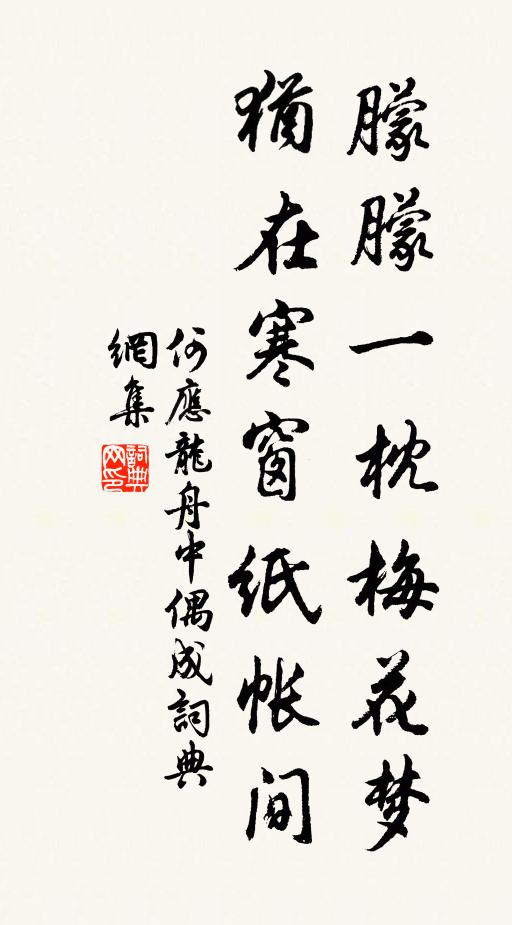 朦朦一枕梅花梦
猶在寒窗纸帐间
何應龍舟中偶成詞典
網集
詞典网印